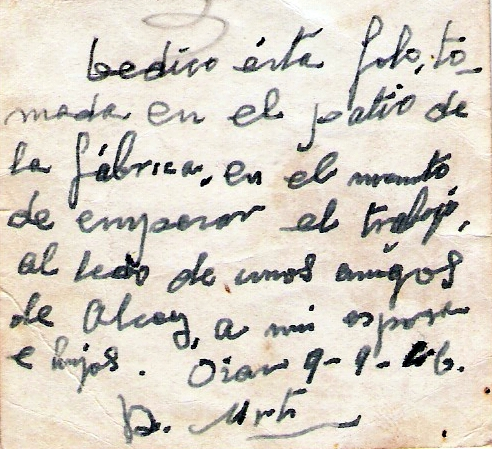 Dedico ésta foto, to-
mada en el patio de
la fábrica, en el momento
de empezar el trabajo,
al lado de unos amigos
de Alcoy, a mi esposa
e hijos. 9-9-